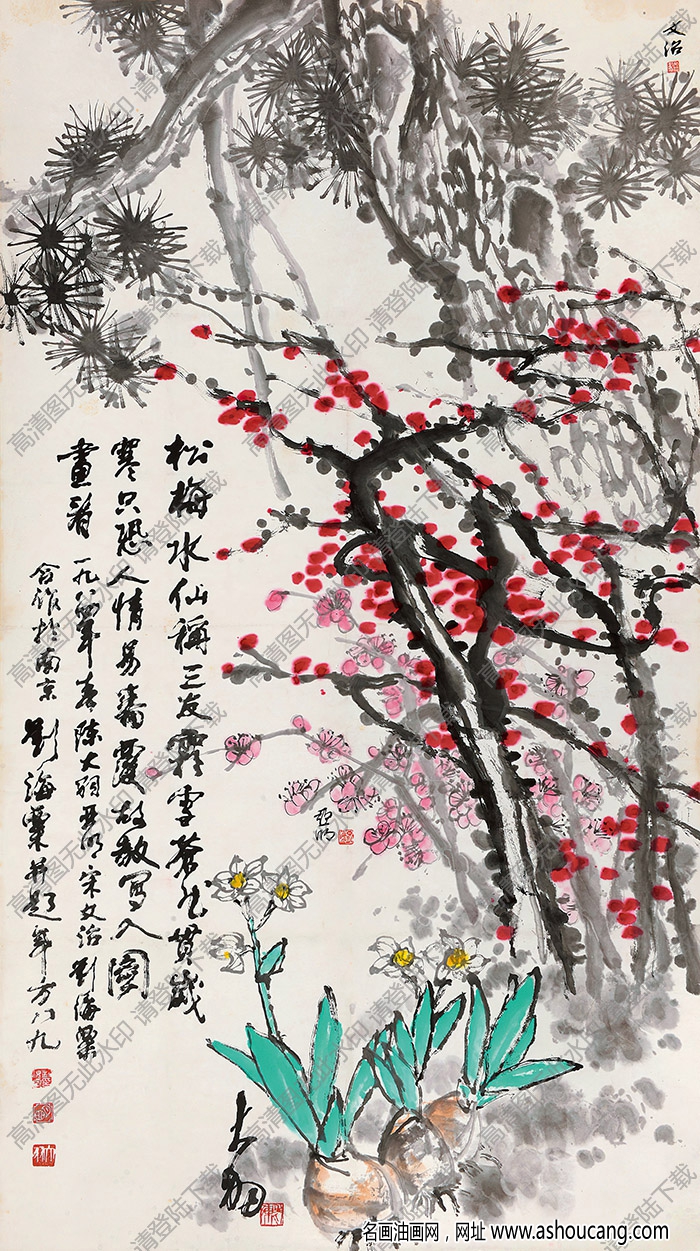 文治
松梅水仙稱三友霜雪蒼然共歲
寒只恐人情易翻覆故教寫入圖
畫看 一九八四年春陳大羽亞明宋文治劉海粟
合作於南京 劉海粟并題年方八九
亞明
大羽
高清图无此水印 请登陆下载
名画油画网，网址 www.ashoucang.com